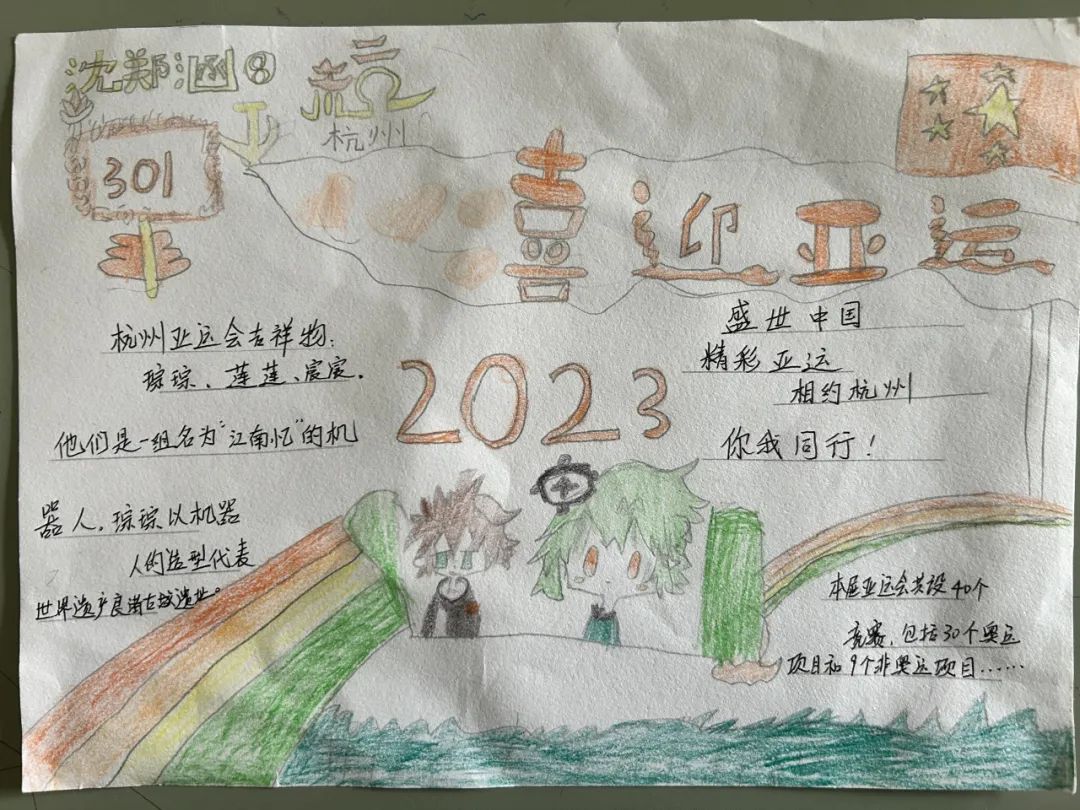 沈郑涵⑧
301
杭州
喜迎亚运
杭州亚运会吉祥物:
琮琮、莲莲、宸宸.
他们是一组名为"江南忆"的机
器人,琮琮以机器
人的造型代表
世界遗产良渚古城遗址。
2023
盛世中国
精彩亚运
相约杭州
你我同行!
本届亚运会共设40个
竞赛,包括30个奥运
项目和9个非奥运项目……